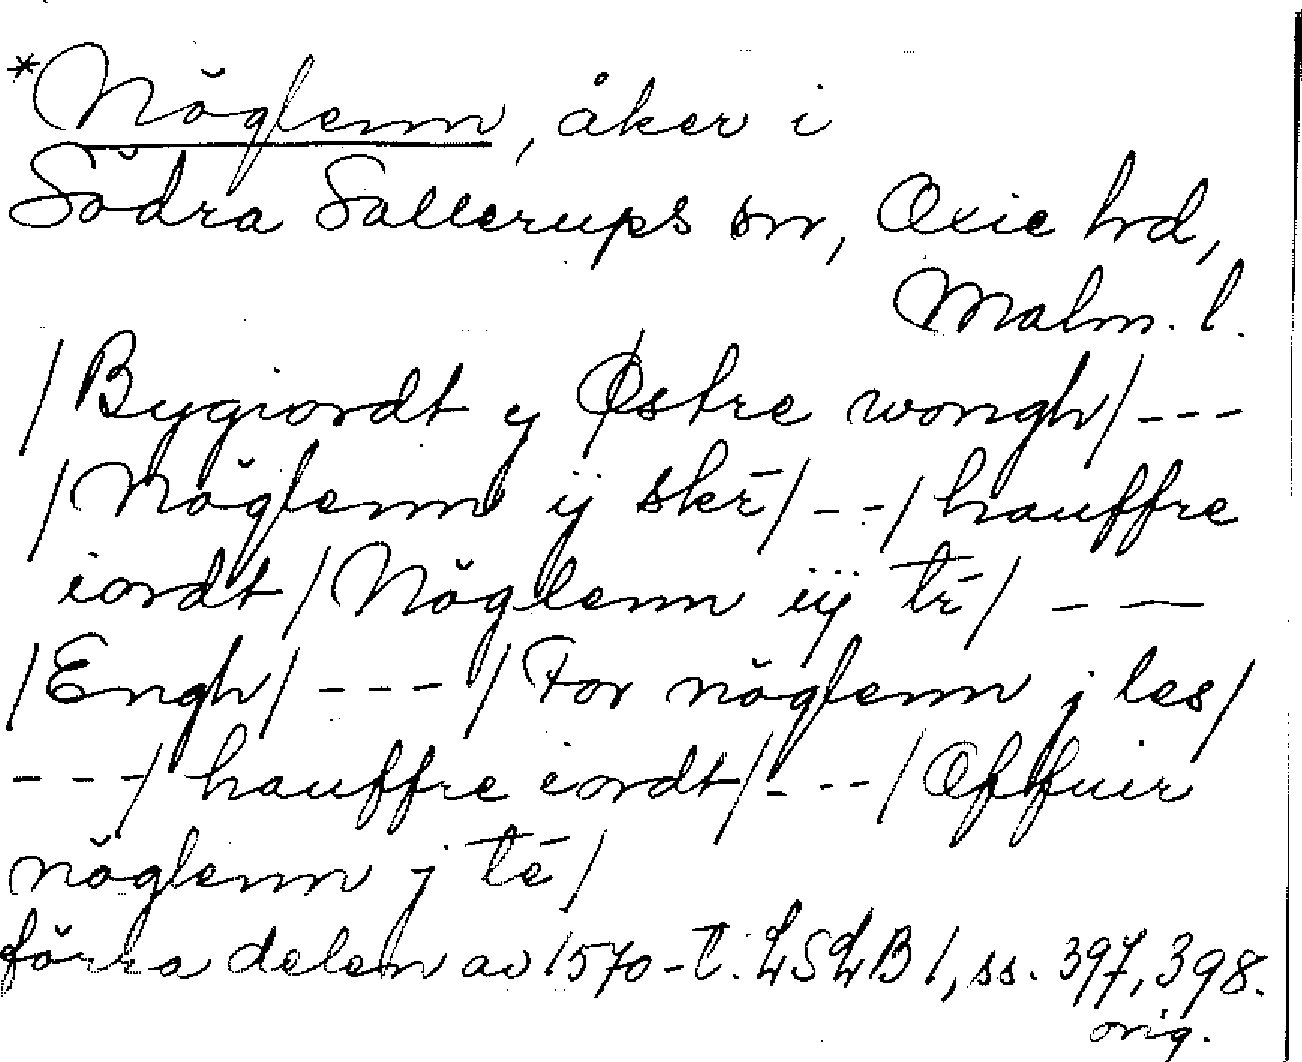 *Nöglenn, åker i
Södra Sallerups sn, Oxie hrd,
Malm. l.
/Bygiordt y Østre wongh/---
/Nöglenn ij skē/ --/hauffre
iordt/Nöglenn iij tē/ --
/Engh/---/For nöglenn j les/
---/hauffre iordt/---/Offuir
nöglenn j tē/
förra delen av 1570-t. LSLB 1, ss. 397, 398.
orig.